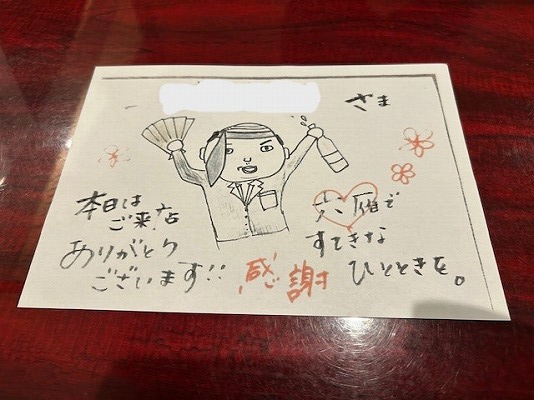 さま
本日は
ご来店
ありがとう
ございます!!
感謝
六雁で
すてきな
ひとときを。